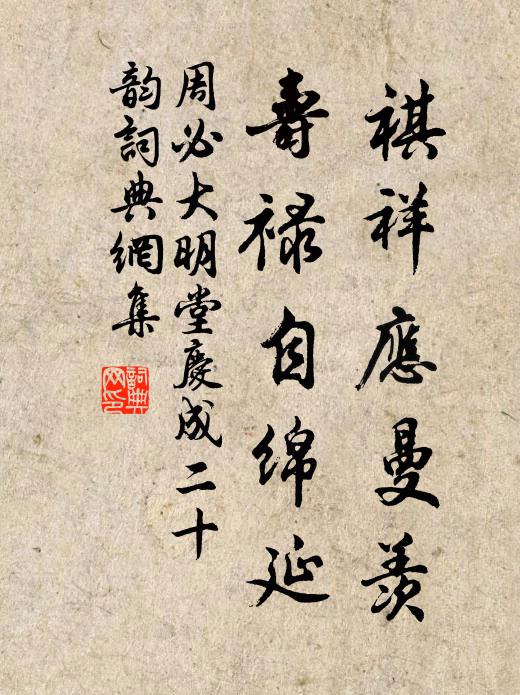 祺祥應曼羨
壽祿自綿延
周必大明堂慶成二十
韵詞典網集
詞典網印